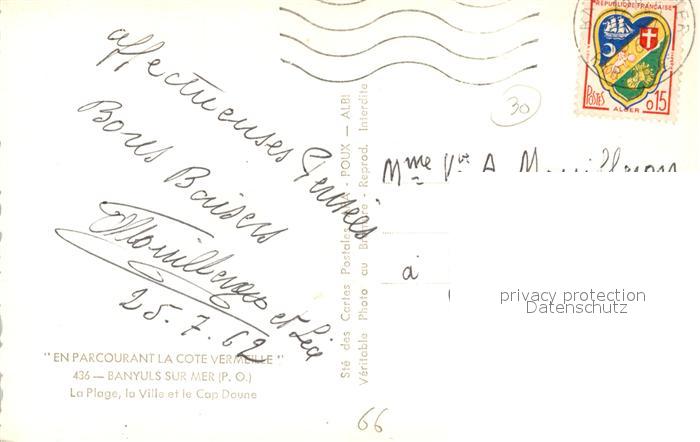 affectueuses Pensées
Bons Baisers
25.7.62
"EN PARCOURANT LA COTE VERMEILLE"
436 — BANYULS SUR MER (P. O.)
La Plage, la Ville et le Cap Doune
Sté des Cartes Postales - POUX — ALBI
Véritable Photo au Br re - Reprod. Interdite
REPUBLIQUE FRANÇAISE
POSTES
0,15
ALGER
30
Mme Vve A.
à
privacy protection
Datenschutz
66